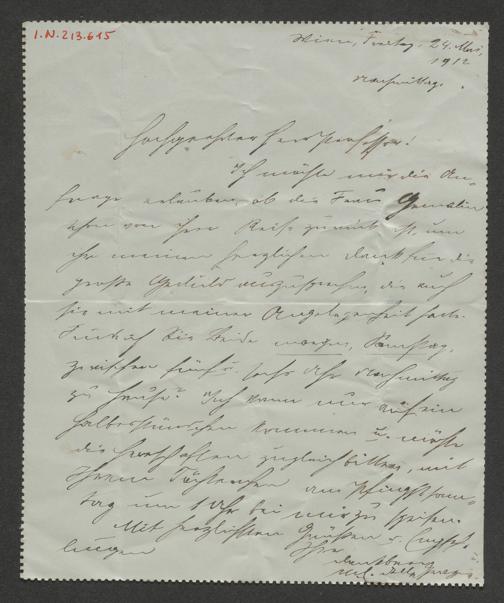 I.N. 213.615
Wien, Freitag, 24. Mai,
1912
Nachmittags.
Hochgeehrter Herr Professor!
Ich möchte mir die An-
frage erlauben, ob die Frau Gemalin
schon von Ihrer Reise zurück ist, um
ihr meinen herzlichen Dank für die
große Geduld auszusprechen, die auch
sie mit meiner Angelegenheit hatte.
Sie Beide morgen, Samstag,
zwischen fünf u. sechs Uhr Nachmittag
zu Hause? Ich kann nur auf ein
Halbestündchen kommen u. möchte
die Herrschaften zugleich bitten, mit
Ihrem Töchterchen am Pfingstsonn-
tag um 1 Uhr bei mir zu speisen.
Mit herzlichsten Grüßen u. Empfeh-
lungen
Ihre
dankbare